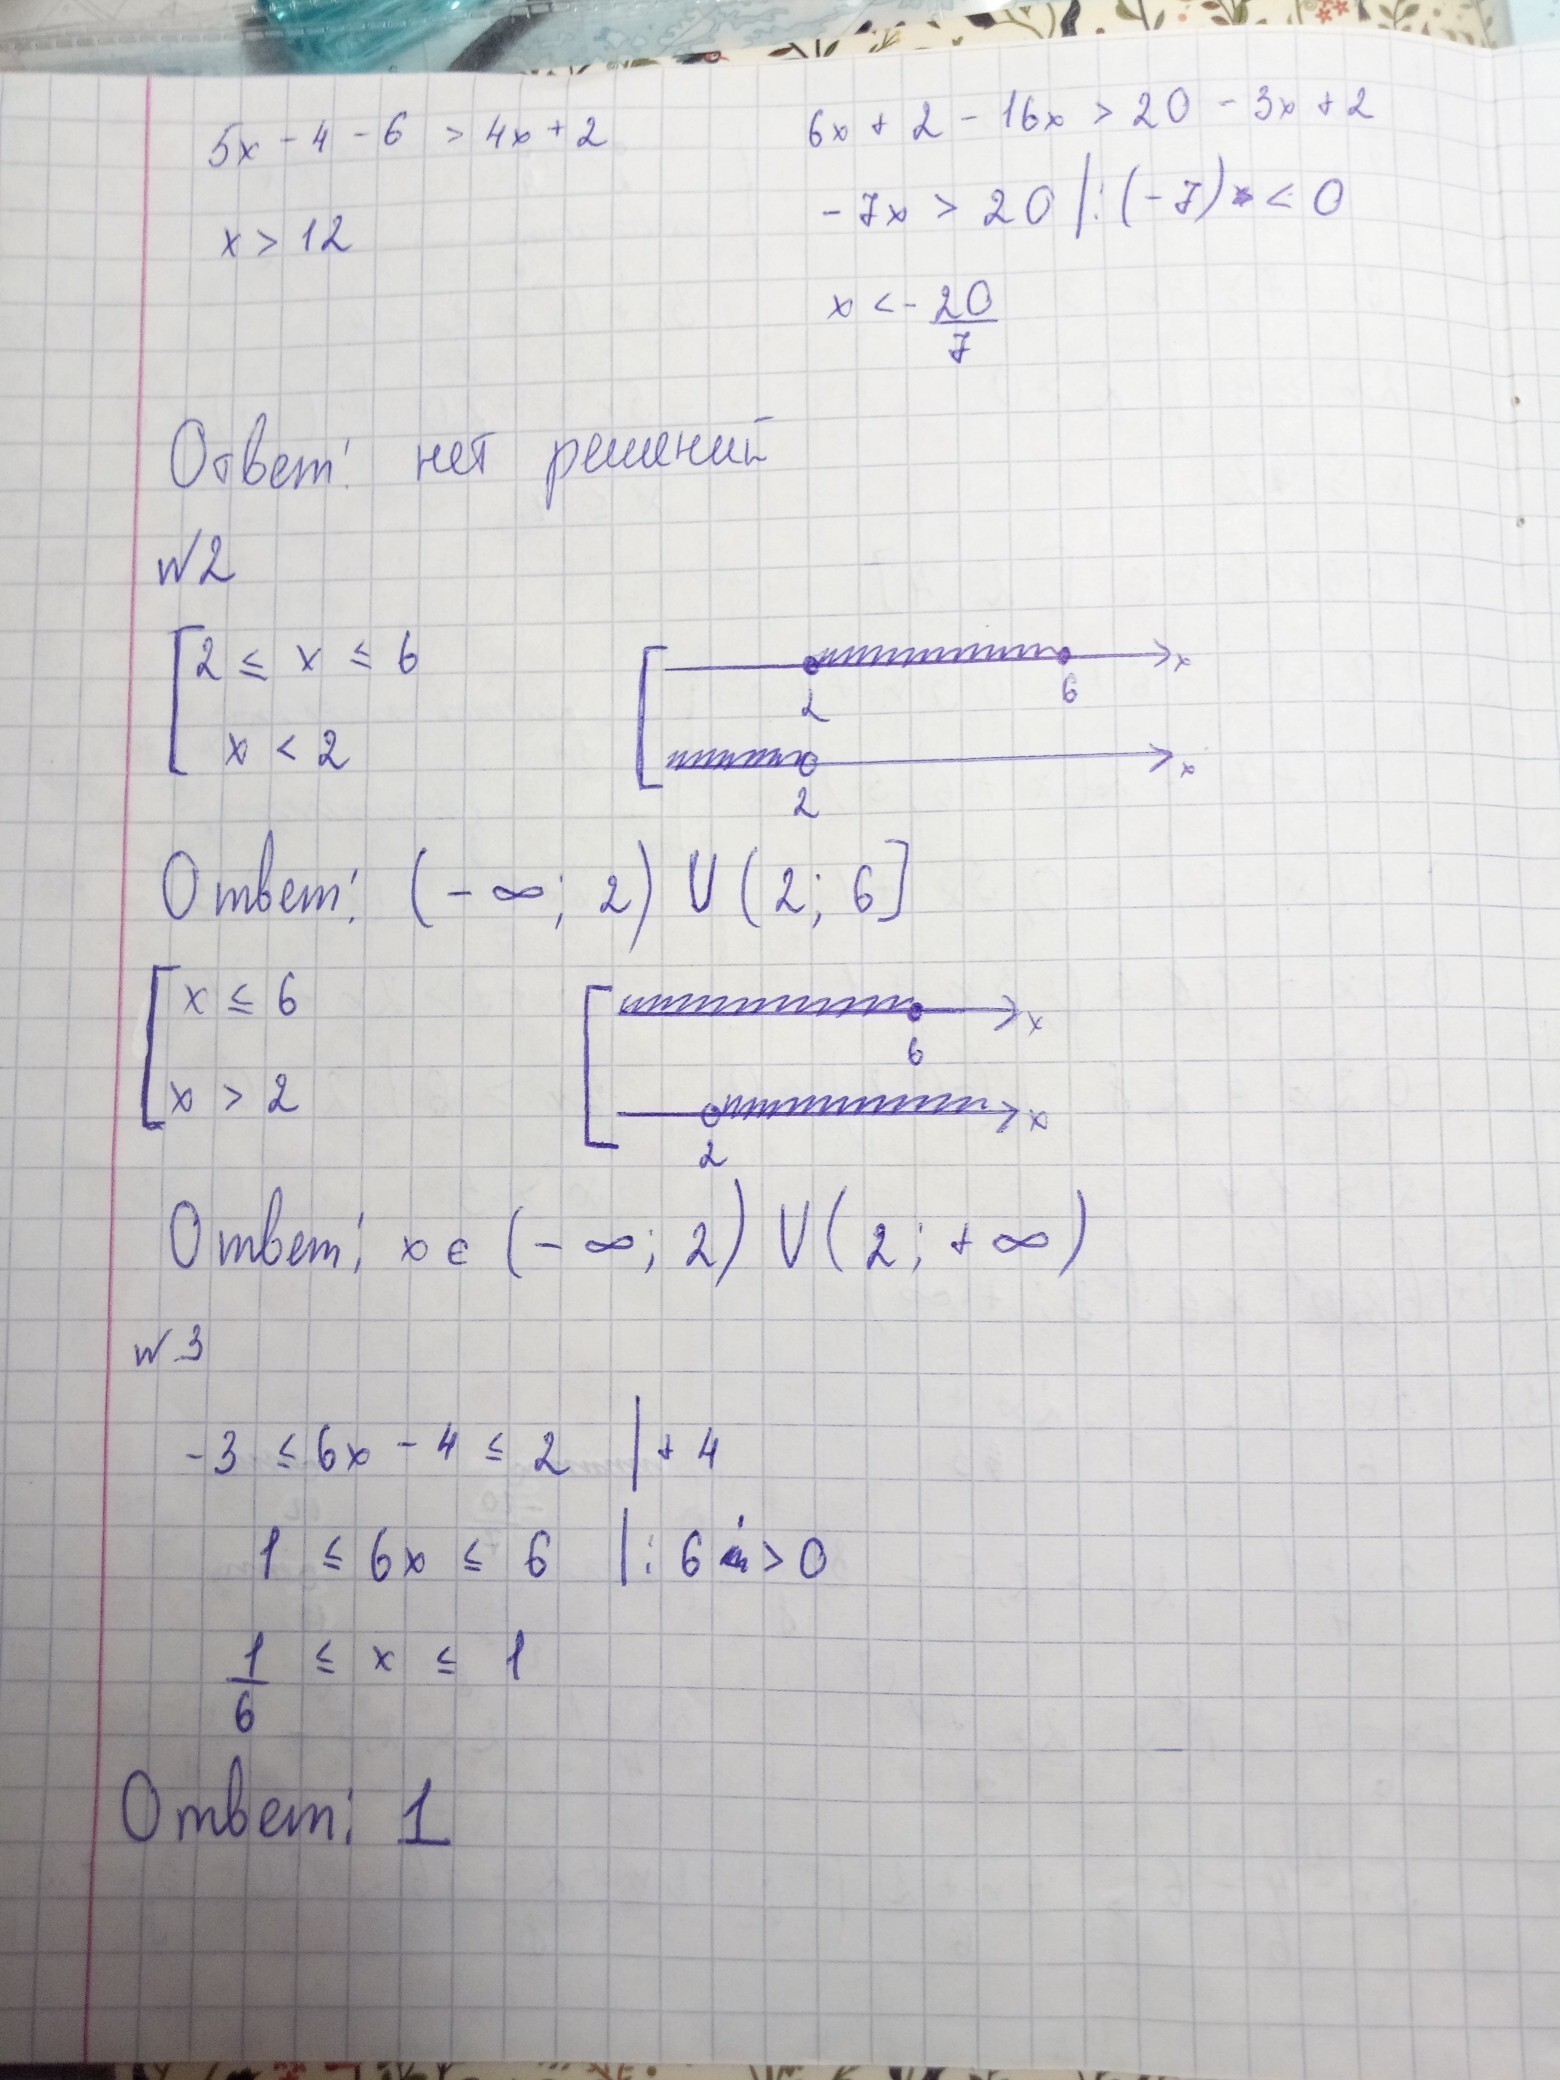 5x - 4 - 6 > 4x + 2
x > 12
6x + 2 - 16x > 20 - 3x + 2
-7x > 20 |:(-7) < 0
x < - 20/7
Ответ: нет решений
№2
[ 2 ≤ x ≤ 6
x < 2
2 6 x
2 x
Ответ: (-∞; 2) ∪ (2; 6]
[ x ≤ 6
x > 2
6 x
2 x
Ответ: x ∈ (-∞; 2) ∪ (2; +∞)
№3
-3 ≤ 6x - 4 ≤ 2 | + 4
1 ≤ 6x ≤ 6 |: 6 > 0
1/6 ≤ x ≤ 1
Ответ: 1